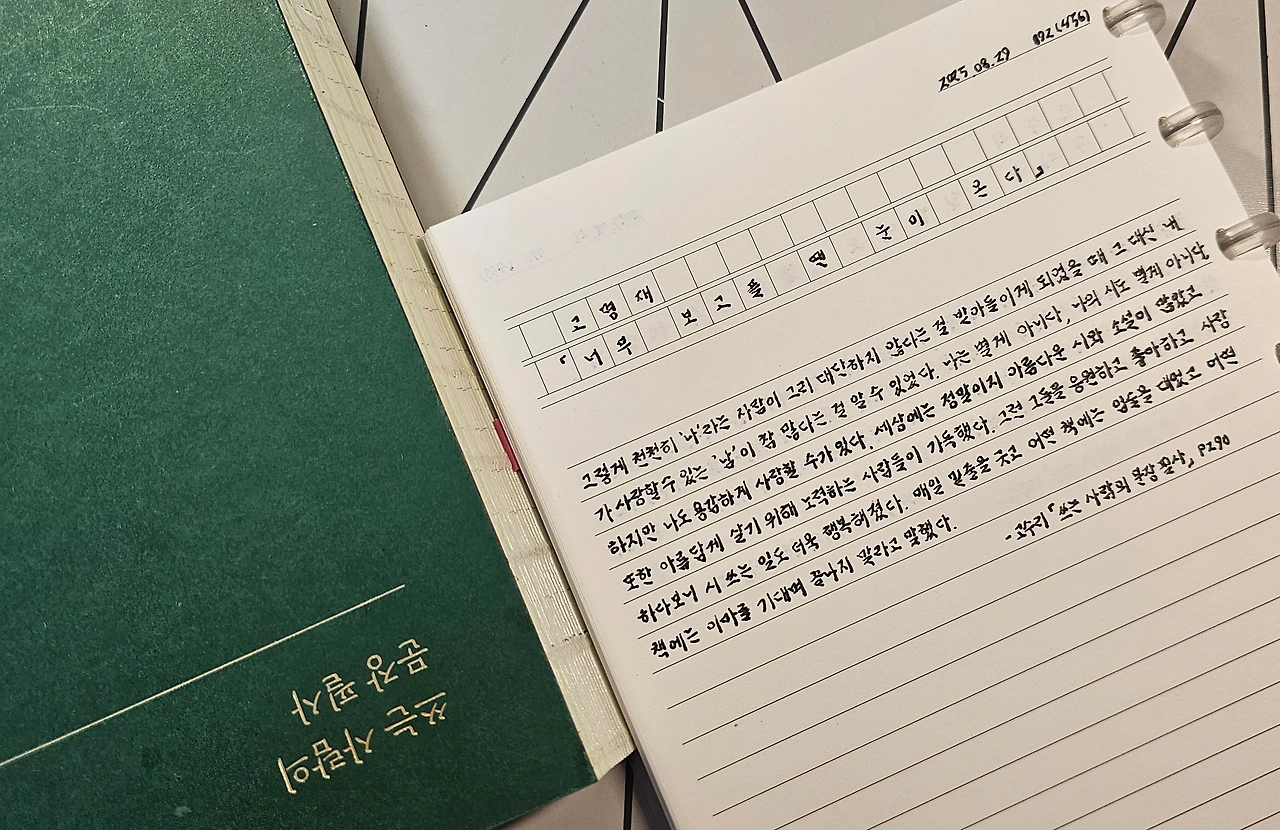 2025.08.29 892(436)
고명재
「너무 보고플 땐 눈이 온다」
그렇게 천천히 '나'라는 사람이 그리 대단하지 않다는 걸 받아들이게 되었을 때 그 대신 내
가 사랑할 수 있는 '남'이 참 많다는 걸 알 수 있었다. 나는 별게 아니다, 나의 시도 별게 아니다
하지만 나도 용감하게 사랑할 수가 있다. 세상에는 정말이지 아름다운 시와 소설이 많았고
또한 아름답게 살기 위해 노력하는 사람들이 가득했다. 그런 그들을 응원하고 좋아하고 사랑
하다보니 시 쓰는 일도 더욱 행복해졌다. 매일 밑줄을 긋고 어떤 책에는 입술을 대었고 어떤
책에는 이마를 기대며 끝나지 말라고 말했다.
- 고수리 「쓰는 사람의 문장 필사」 P290
쓰는 사람의
문장 필사